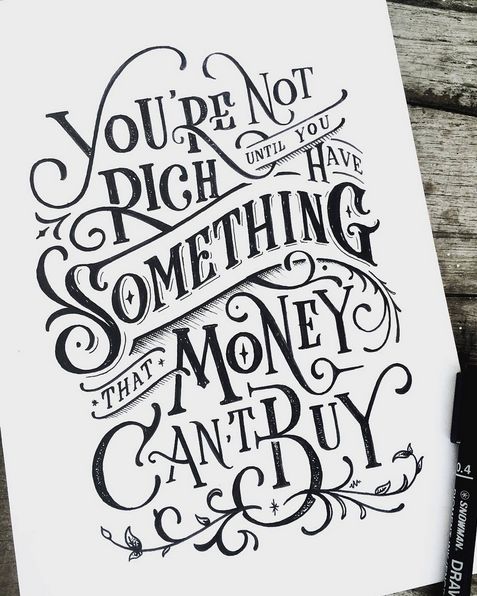 YOU'RE NOT
UNTIL YOU
RICH HAVE
SOMETHING
THAT MONEY
CAN'T BUY
0.4
SNOWMAN. DRAW